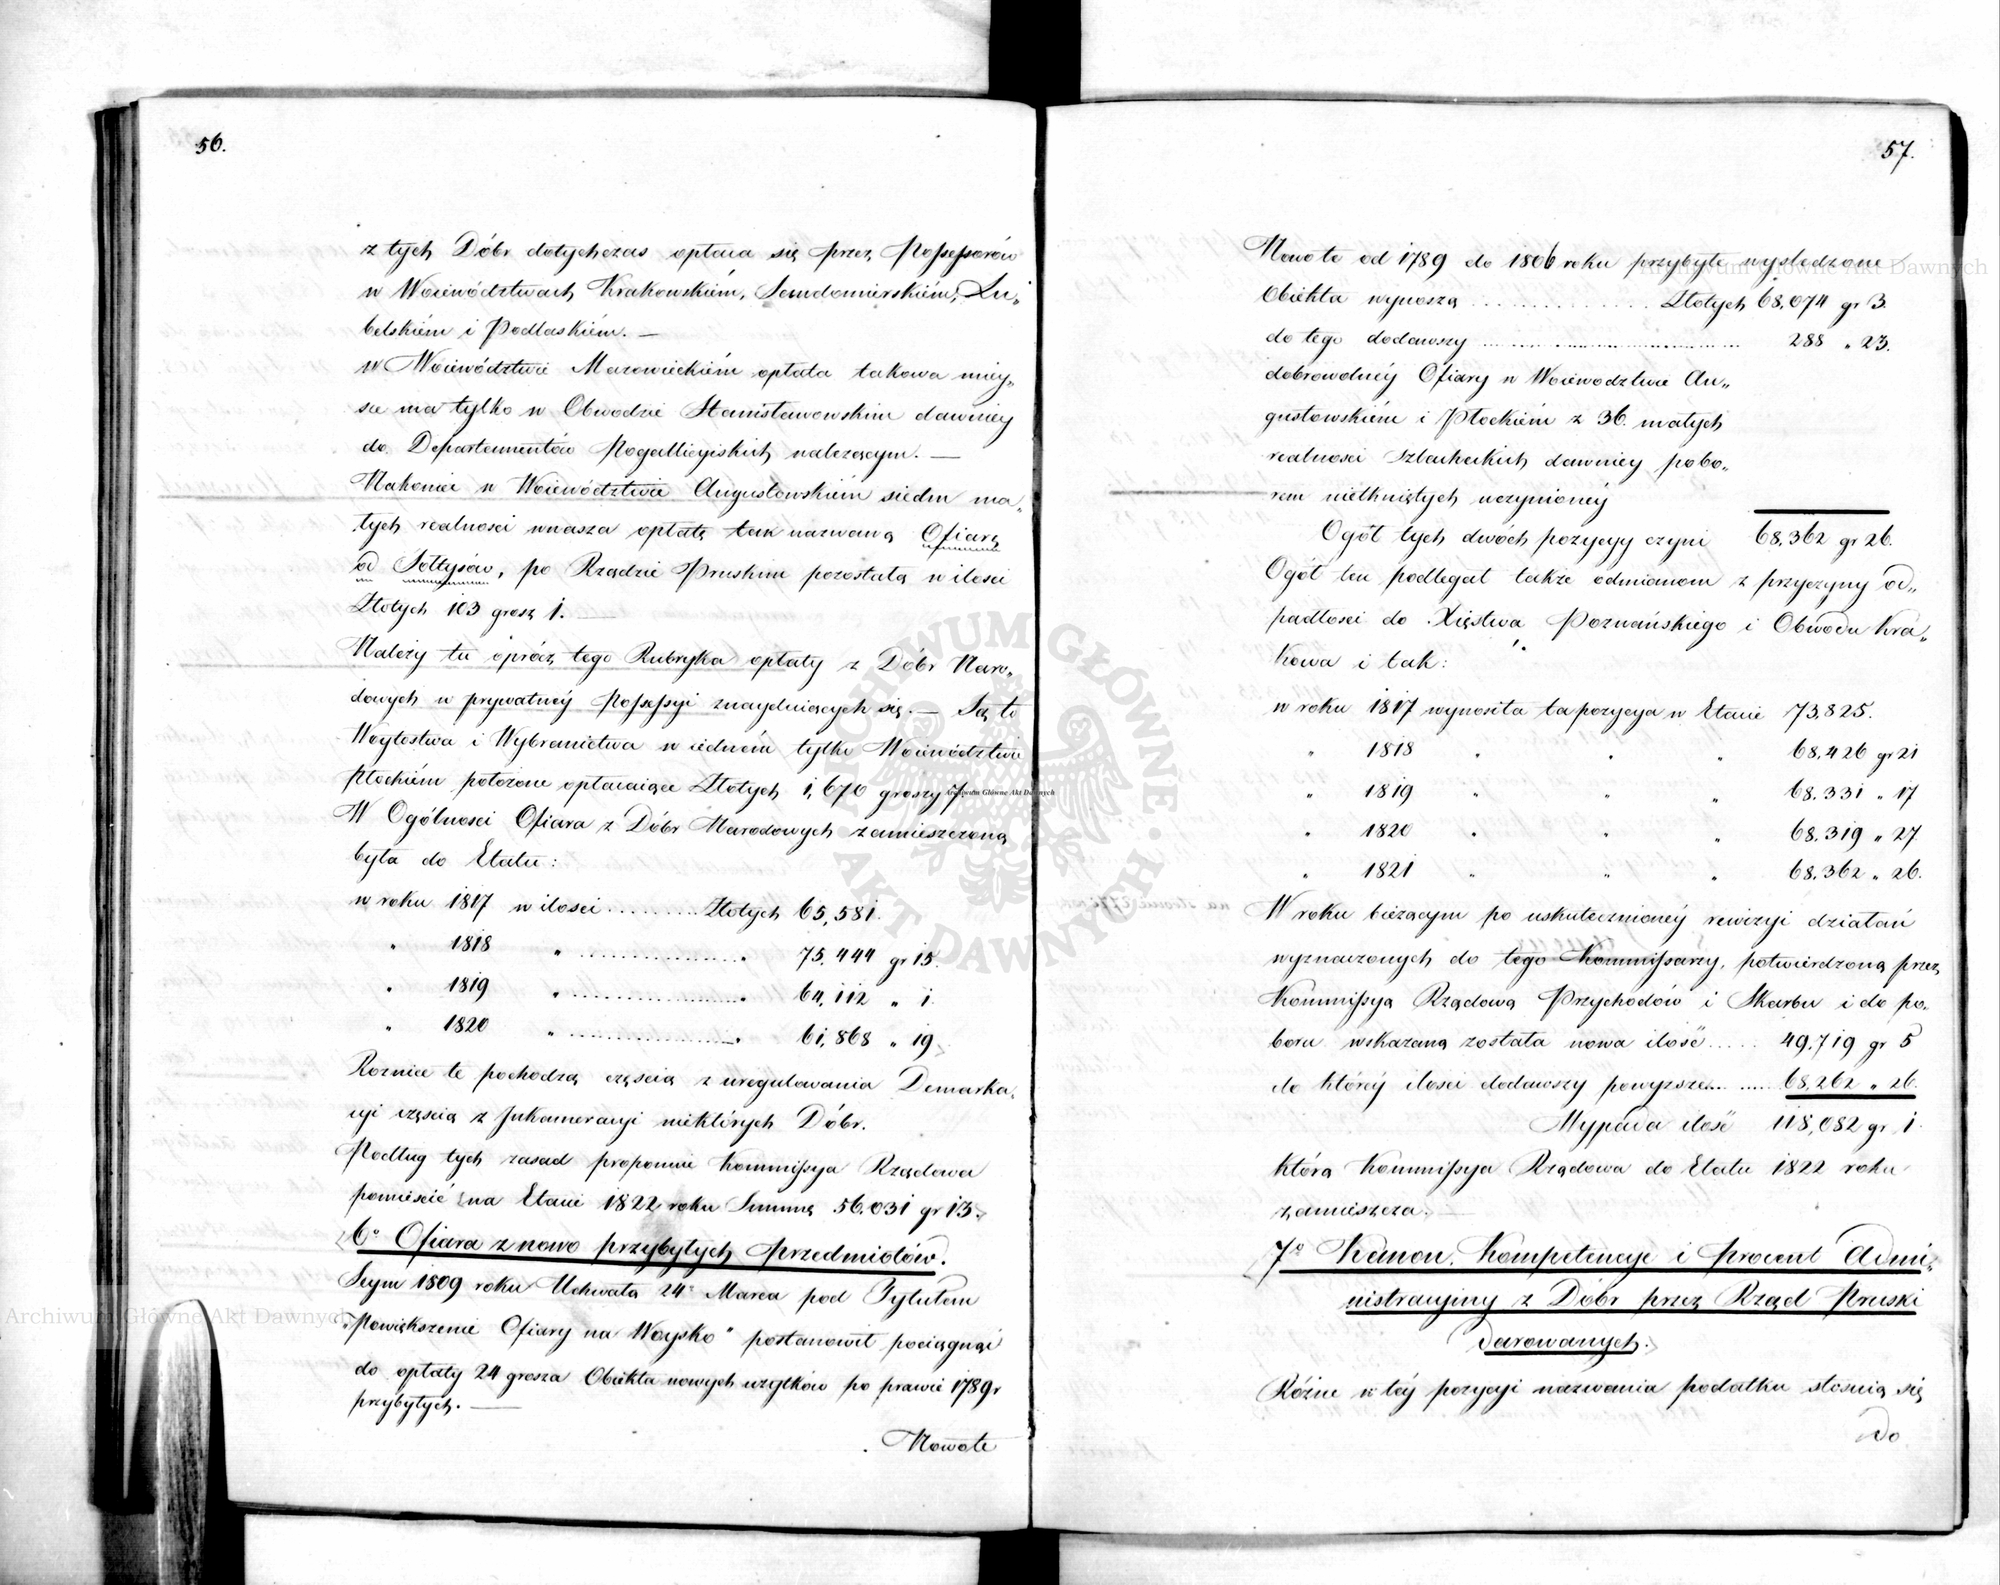 56.
z tych Dóbr dotychczas opłaca się przez Possessorów
w Woiewództwach Krakowskiém, Sendomierskiém, Lu„
belskiém i Podlaskiém. —
w Woiewództwie Mazowieckiém opłata takowa miey„
sce ma tylko w Obwodzie Stanisławowskim dawniey
do Departamentów Pogallicyiskich należącym. —
Nakoniec w Woiewództwie Augustowskiém siedm ma„
łych realnosci wnasza opłatę tak nazwaną Ofiarą
od Sołtysów, po Rządzie Pruskim pozostałą w ilosci
Złotych 103 grosz 1. —
Należy tu oprócz tego Rubryka opłaty z Dóbr Naro„
dowych w prywatnéy Possessyi znayduiących się. — Są to
Woytostwa i Wybranictwa w iedném tylko Woiewództwie
Płockiém położone opłacaiące Złotych 1,670 groszy 7.
W Ogólnosci Ofiara z Dóbr Narodowych zamieszczoną
była do Etatu:
w roku 1817 w ilosci ......... Złotych 65,581.
„ 1818 „ .................. „ 75,444 gr 15.
„ 1819 „ .................. „ 64,112 „ 1.
„ 1820 „ .................. „ 61,868 „ 19
Roznice te pochodzą częscią z uregulowania Demarka„
cyi częscią z Inkameracyi niektórych Dóbr.
Podług tych zasad proponuie Kommissya Rządowa
pomiescić na Etacie 1822 roku Summę 56.031 gr 13.
6° Ofiara z nowo przybyłych Przedmiotów.
Seym 1809 roku Uchwałą 24° Marca pod Tytułem
„Powiększenie Ofiary na Woysko" postanowił pociągnąć
do opłaty 24 grosza Obiekta nowych użytków po prawie 1789 r
przybyłych. —
Nowo te
57.
Nowo te od 1789 do 1806 roku przybyłe wysledzone
Obiekta wynoszą ............... Złotych 68,074 gr 3.
do tego dodawszy .............................. 288 „ 23.
dobrowolnéy Ofiary w Woiewodztwie Au„
gustowskiém i Płockiém z 36. małych
realnosci Szlacheckich dawniey pobo„
rem nietkniętych uczynionéy
Ogół tych dwóch pozycyy czyni 68,362 gr 26.
Ogół ten podlegał także odmianom z przyczyny od„
padłosci do Xięstwa Poznańskiego i Obwodu Kra„
kowa i tak:
w roku 1817 wynosiła ta pozycya w Etacie 73,825.
„ 1818 „ „ „ 68,426 gr 21
„ 1819 „ „ „ 68.331 „ 17
„ 1820 „ „ „ 68,319 „ 27
„ 1821 „ „ „ 68,362 „ 26.
W roku bieżącym po uskutecznionéy rewizyi działań
wyznaczonych do tego Kommissarzy, potwierdzoną przez
Kommissyą Rządową Przychodów i Skarbu i do po„
boru wskazaną została nowa ilość ..... 49,719 gr 5
do któréy ilosci dodawszy powyższe.. ..... 68,262 „ 26.
Wypada ilość 118,082 gr 1.
którą Kommissya Rządowa do Etatu 1822 roku
zamieszcza. —
7° Kanon, Kompetencye i Procent Admi„
nistracyiny z Dóbr przez Rząd Pruski
darowanych.
Różne w téy pozycyi nazwania podatku stosuią się
do
ARCHIWUM GŁÓWNE AKT DAWNYCH
Archiwum Główne Akt Dawnych
Archiwum Główne Akt Dawnych
Archiwum Główne Akt Dawnych